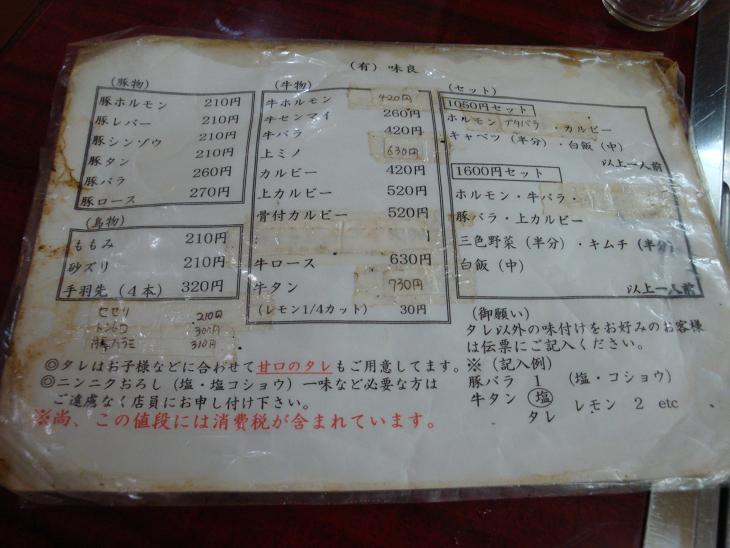 (有) 味良
(豚物)
豚ホルモン 210円
豚レバー 210円
豚シンゾウ 210円
豚タン 210円
豚バラ 260円
豚ロース 270円
(鳥物)
ももみ 210円
砂ズリ 210円
手羽先 (4本) 320円
セセリ 210円
トントロ 300円
豚ハラミ 310円
(牛物)
牛ホルモン 420円
牛センマイ 260円
牛バラ 420円
上ミノ 630円
カルビー 420円
上カルビー 520円
骨付カルビー 520円
牛ロース 630円
牛タン 730円
(レモン1/4カット) 30円
(セット)
1050円セット
ホルモン ブタバラ ・カルビー
キャベツ (半分) ・白飯 (中)
以上一人前
1600円セット
ホルモン・牛バラ・
豚バラ・上カルビー
三色野菜 (半分) ・キムチ (半分)
白飯 (中)
以上一人前
◎タレはお子様などに合わせて甘口のタレもご用意してます。
◎ニンニクおろし (塩・塩コショウ) 一味など必要な方は
ご遠慮なく店員にお申し付け下さい。
※尚、この値段には消費税が含まれています。
(御願い)
タレ以外の味付けをお好みのお客様
は伝票にご記入ください。
※ (記入例)
豚バラ 1 (塩・コショウ)
牛タン 塩 レモン 2 etc
タレ